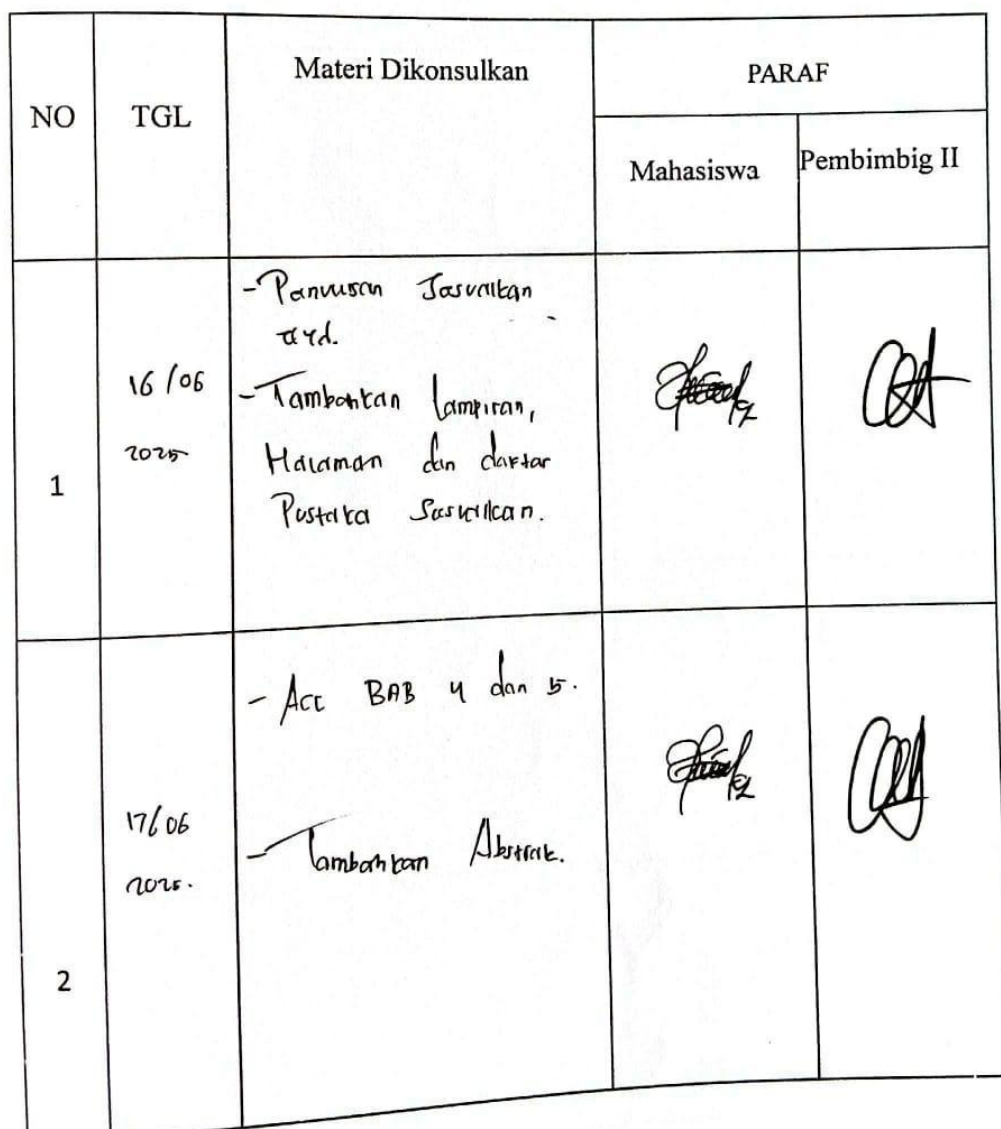 NO
TGL
Materi Dikonsulkan
PARAF
Mahasiswa
Pembimbig II
1
16/06
2025
- Tambahkan lampiran,
Halaman dan daftar
Pustaka Sesuaikan.
2
17/06
2025.
- Acc BAB 4 dan 5.
- Tambahkan Abstrak.